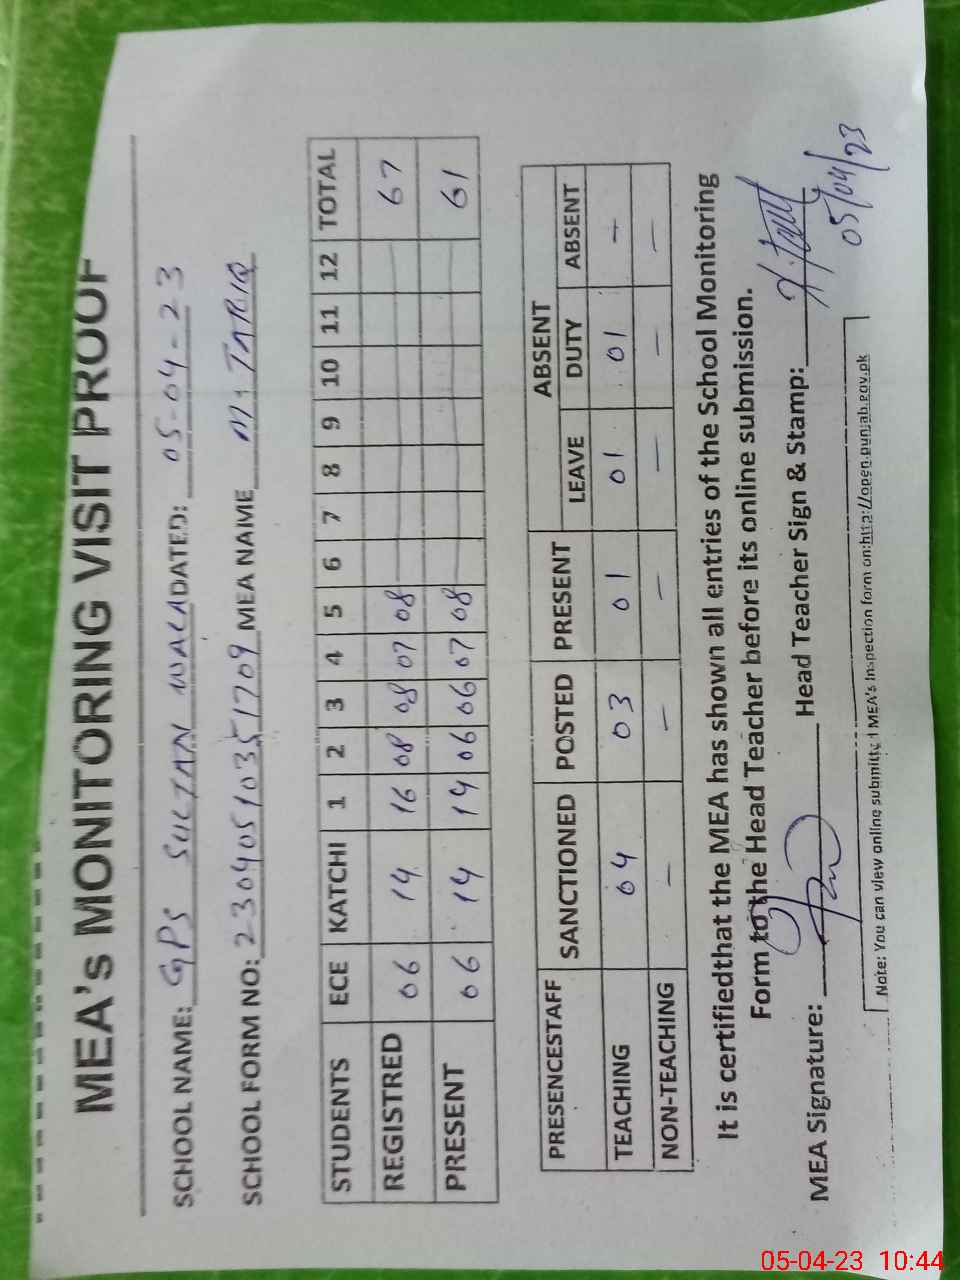 MEA's MONITORING VISIT PROOF
SCHOOL NAME: GPS SULTAN WALA DATED: 05-04-23
SCHOOL FORM NO: 23040510351709 MEA NAME M. TARIQ
STUDENTS ECE KATCHI 1 2 3 4 5 6 7 8 9 10 11 12 TOTAL
REGISTRED 06 14 16 08 08 07 08 67
PRESENT 06 14 14 06 06 07 08 61
PRESENCESTAFF SANCTIONED POSTED PRESENT ABSENT
LEAVE DUTY ABSENT
TEACHING 04 03 01 01 01 -
NON-TEACHING - - - - - -
It is certifiedthat the MEA has shown all entries of the School Monitoring
Form to the Head Teacher before its online submission.
MEA Signature: Head Teacher Sign & Stamp:
05/04/23
Note: You can view online submitted MEA's Inspection form on:http://open.punjab.gov.pk
05-04-23 10:44